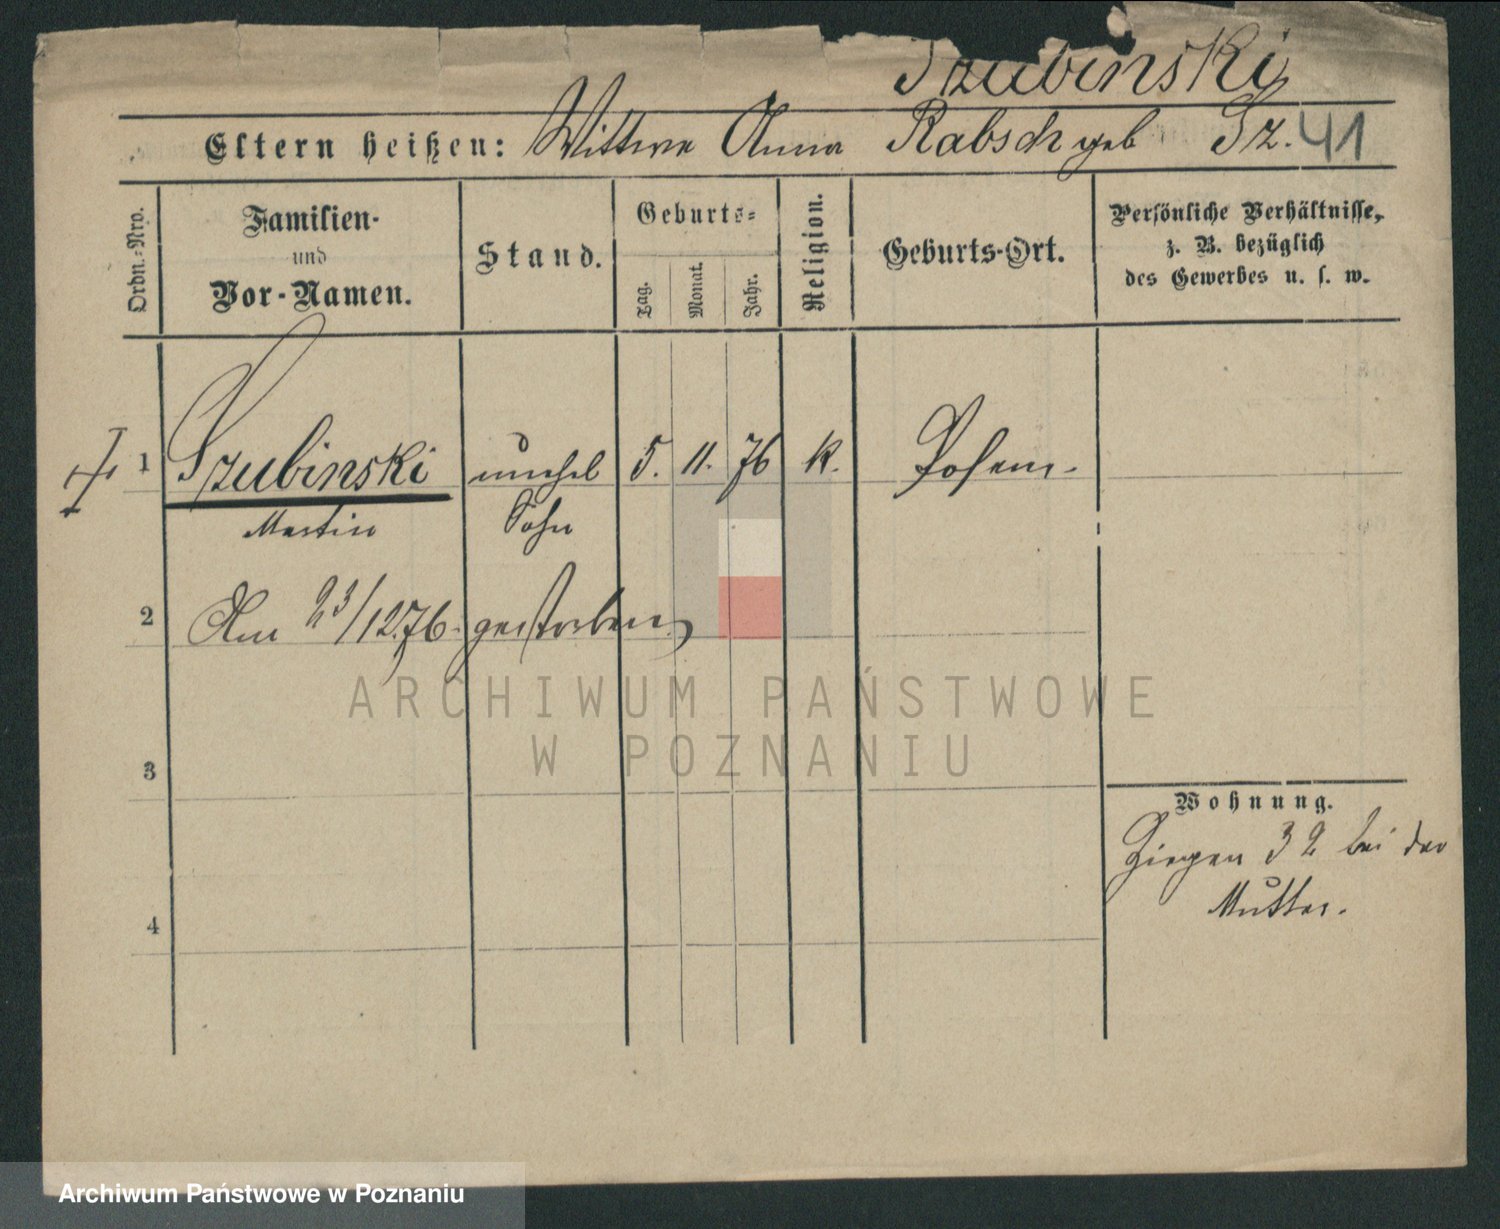 Szubinski
Eltern heißen: Wittwe Anna Rabsch geb Sz. 41
Ordn.-Nro.
Familien-
und
Vor-Namen.
Stand.
Geburts-
Tag.
Monat.
Jahr.
Religion.
Geburts-Ort.
Persönliche Verhältnisse,
z. B. bezüglich
des Gewerbes u. s. w.
1 Szubinski unehel 5. 11. 76 k. Posen.
Martin Sohn
2 Am 23/12.76. gestorben
ARCHIWUM PAŃSTWOWE
W POZNANIU
3
Wohnung.
32 bei der
Mutter.
4
Archiwum Państwowe w Poznaniu